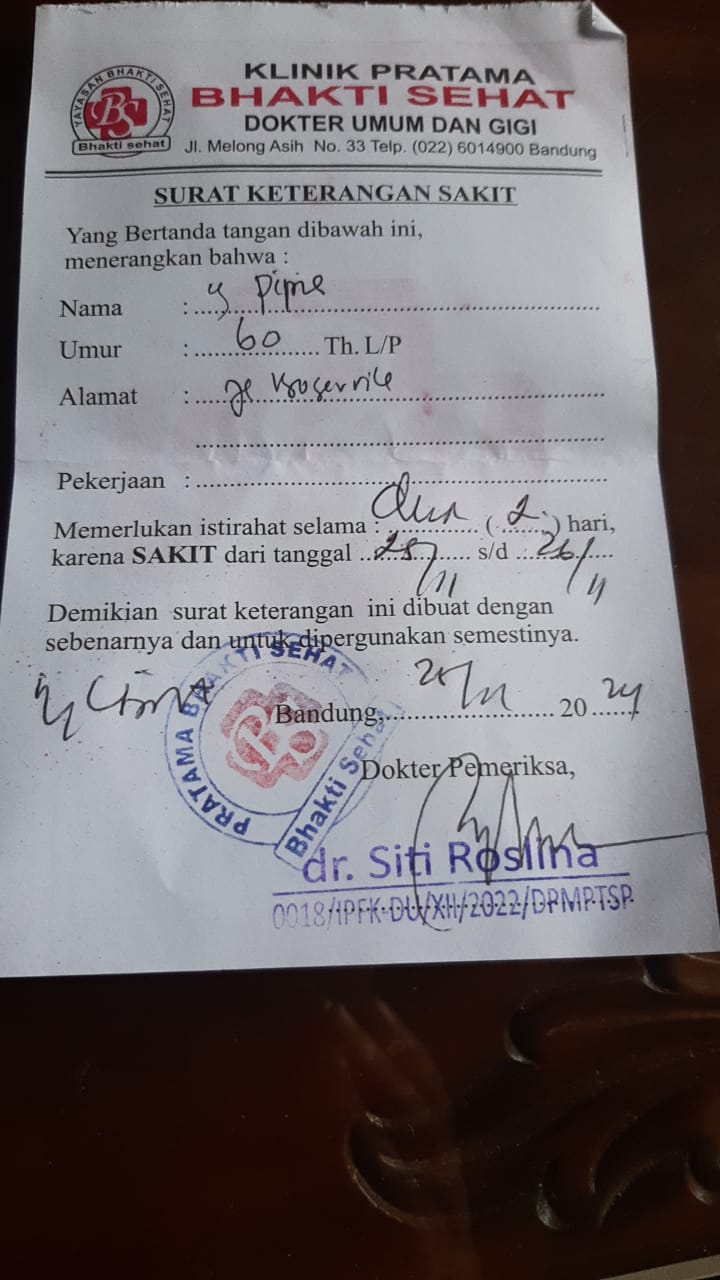 YAYASAN BHAKTI SEHAT
BS
Bhakti sehat
KLINIK PRATAMA
BHAKTI SEHAT
DOKTER UMUM DAN GIGI
Jl. Melong Asih No. 33 Telp. (022) 6014900 Bandung
SURAT KETERANGAN SAKIT
Yang Bertanda tangan dibawah ini,
menerangkan bahwa :
Nama :
Umur : 60 Th. L/P
Alamat :
Pekerjaan :
Memerlukan istirahat selama : dua ( 2 ) hari,
karena SAKIT dari tanggal 25/11 s/d 26/11
Demikian surat keterangan ini dibuat dengan
sebenarnya dan untuk dipergunakan semestinya.
Bandung, 25/11 2024
PRATAMA BHAKTI SEHAT
Bhakti Sehat
Dokter Pemeriksa,
dr. Siti Roslina
0018/IPFK-DU/XII/2022/DPMPTSP